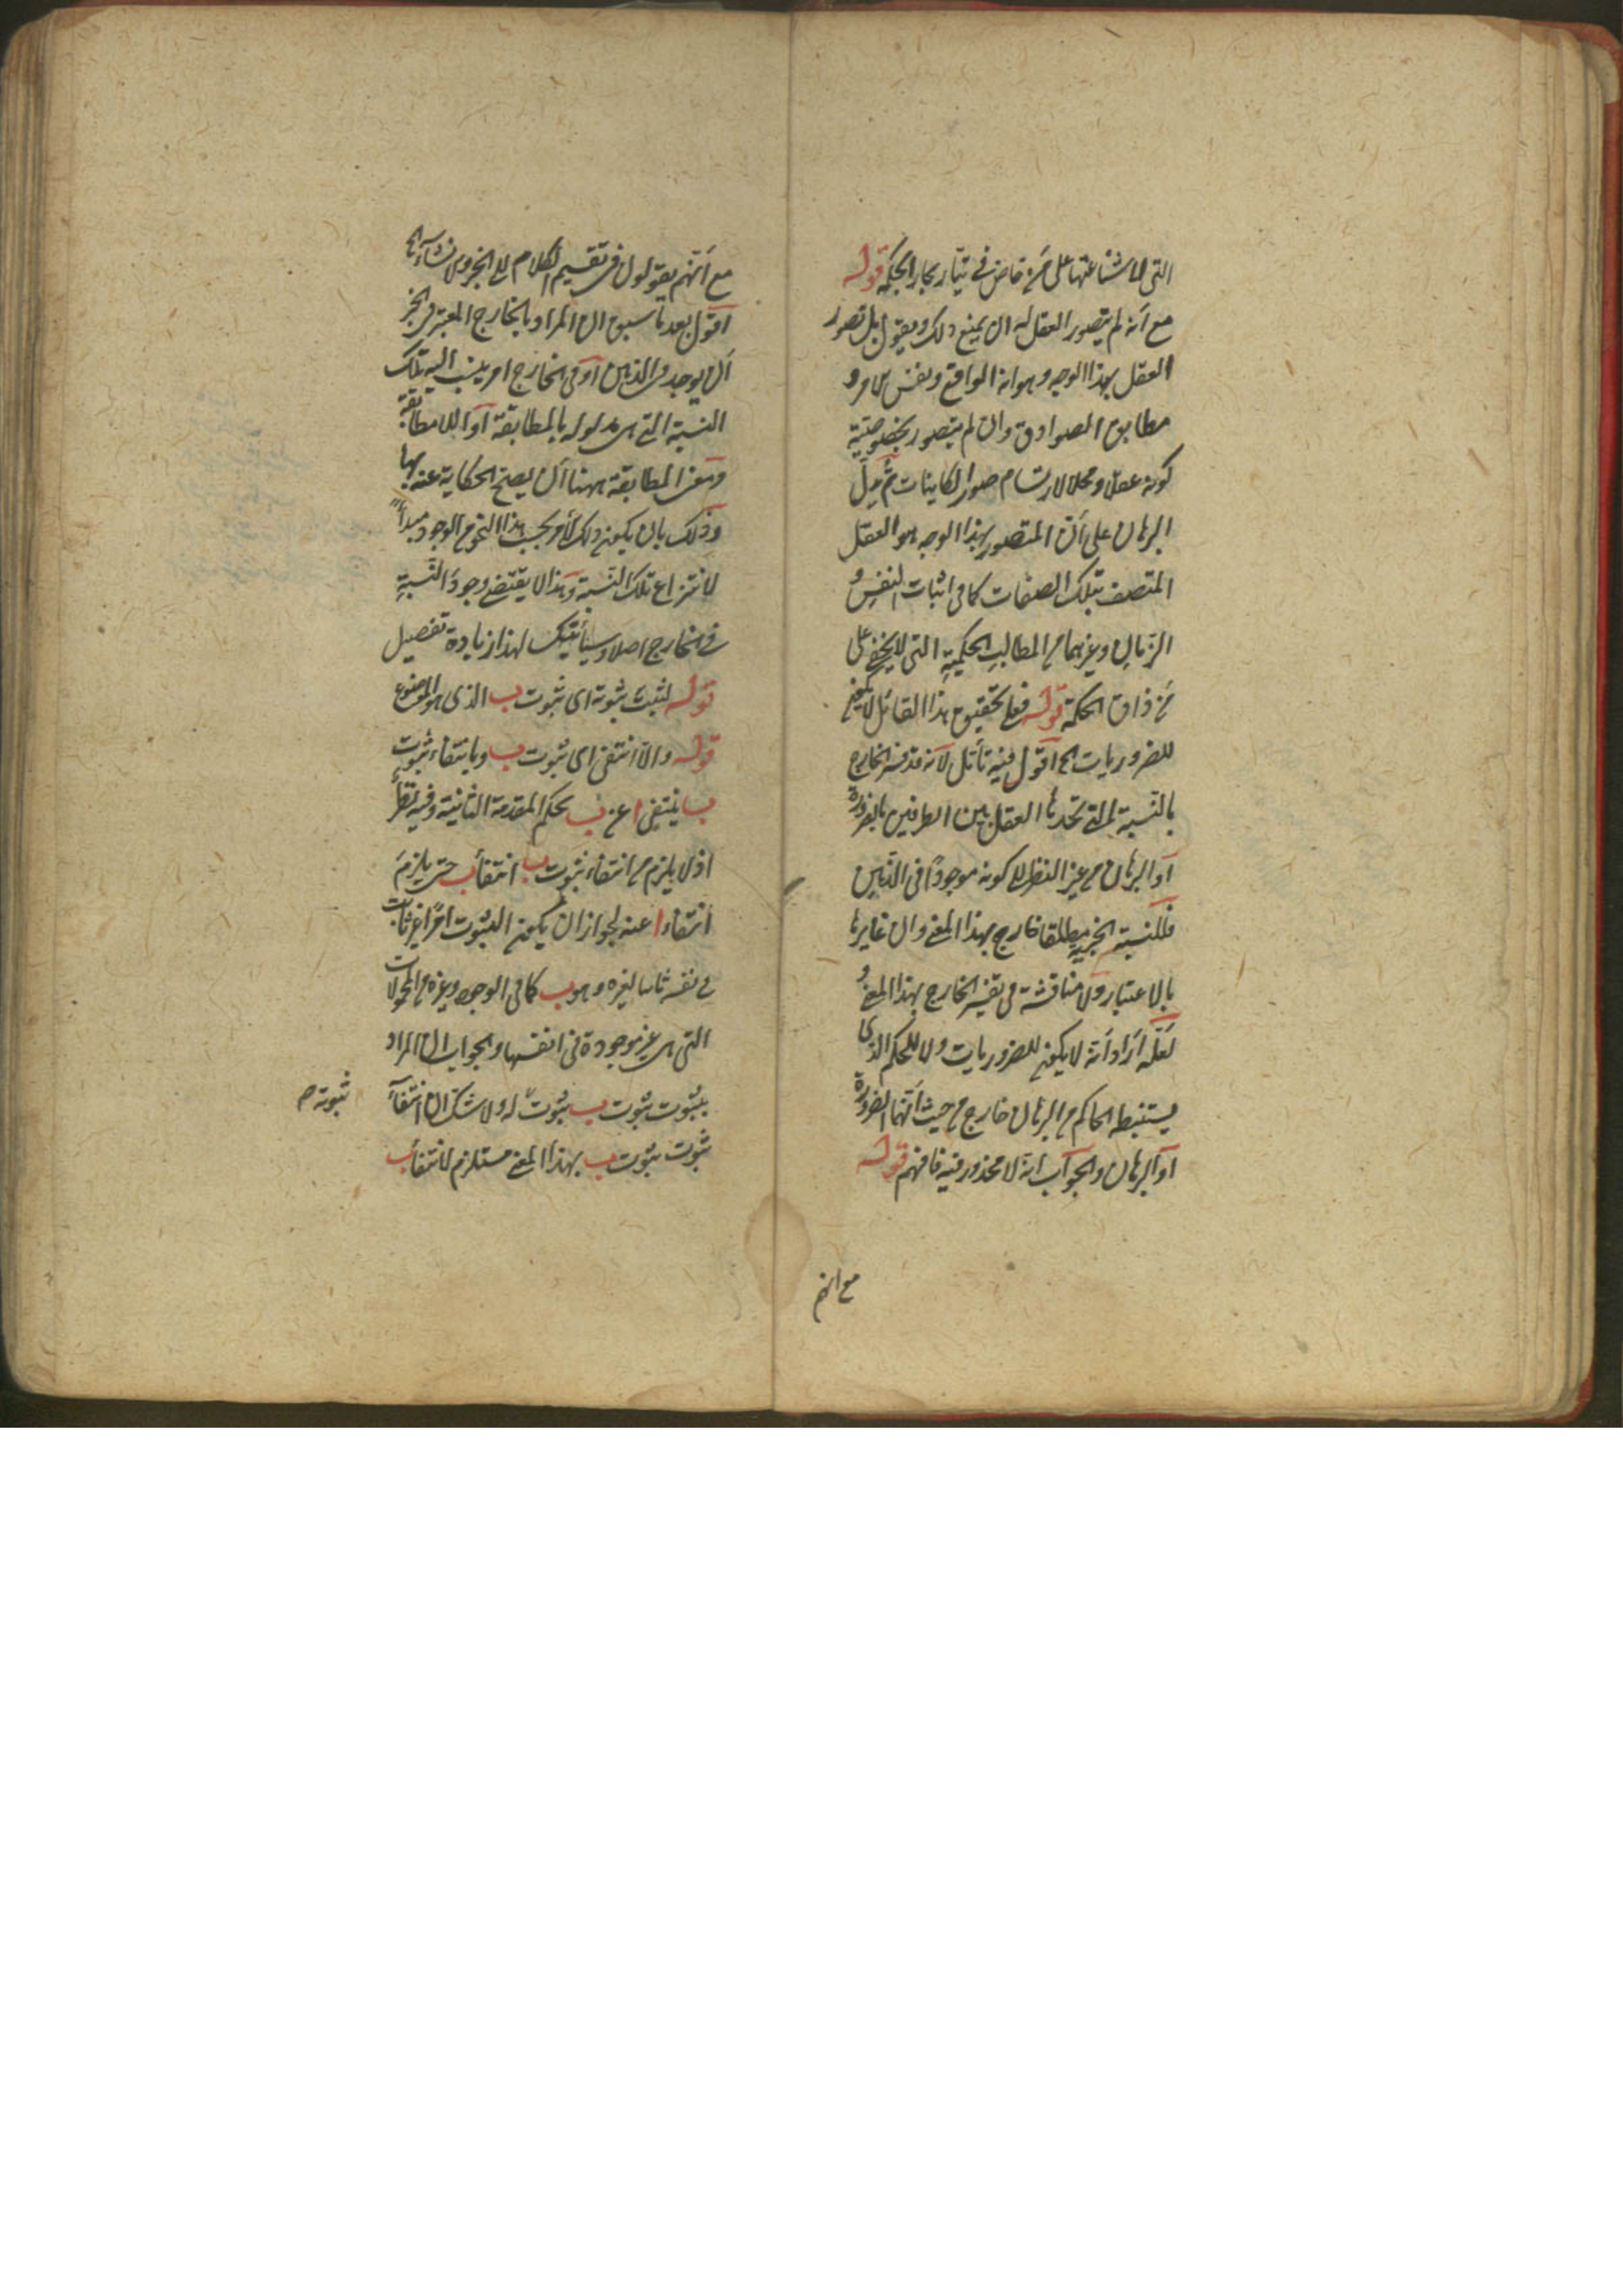 التى لا شناعتها على من خاض فى تيار بحار الحكمة قوله
مع أنه لم يتصور العقل له ان يمنع ذلك ويقول بل تصور
العقل بهذا الوجه وهو انه الواقع ونفس الامر و
مطابق الصوادق وان لم يتصور بخصوصية
كونه عقلا ومحلا لارتسام صور الكاينات ثم دل
البرهان على أن المتصور بهذا الوجه هو العقل
المتصف بتلك الصفات كما فى اثبات النفس و
الزمان وغيرهما من المطالب الحكمية التى لا يخفى على
من ذاق الحكمة قوله فعلى تحقيق هذا القائل لا يكون
للضروريات الخ اقول فيه تأمل لانه قد فسر الخارج
بالنسبة التى تجدها العقل بين الطرفين بالضرورة
أو البرهان من غير النظر الى كونه موجودا فى الذهن
فللنسبة الخبرية مطلقا خارج بهذا المعنى وان غايرها
بالاعتبار ولا مناقشة فى تفسير الخارج بهذا المعنى و
لعله أراد أنه لا يكون للضروريات ولا للحكم الذى
يستنبطه الحاكم من البرهان خارج من حيث أنهما الضرورة
او البرهان والجواب انه لا محذور فيه فافهم قوله
مع انهم
مع أنهم يقولون فى تقسيم الكلام الى الخبر والانشاء الخ
اقول بعد ما سبق ان المراد بالخارج المعتبر فى الخبر
أن يوجد فى الذهن أو فى الخارج امر ينسب اليه تلك
النسبة التى هى مدلوله بالمطابقة أو اللامطابقة
ومعنى المطابقة ههنا أن يصح الحكاية عنه بها
وذلك بان يكون ذلك الأمر بحسب هذا النحو من الوجود مبدأ
لانتزاع تلك النسبة وهذا لا يقتضى وجود النسبة
فى الخارج اصلا وسيأتيك لهذا زيادة تفصيل
قوله لثبت ثبوته اى ثبوت ب الذى هو الموضوع
قوله والا انتفى اى ثبوت ب وبانتفاء ثبوت
ب ينتفى ا عن ب بحكم المقدمة الثانية وفيه نظر
اذ لا يلزم من انتفاء ثبوت ب انتفاء ب حتى يلزم
انتفاء ا عنه لجواز ان يكون الثبوت امرا غير ثابت
فى نفسه ثابتا لغيره وهو ب كما فى الوجود وغيره من المحمولات
التى هى غير موجودة فى انفسها والجواب ان المراد
بثبوت ثبوت ب ثبوت له ولا شك ان انتفاء
ثبوته صح
ثبوت ثبوت ب بهذا المعنى مستلزم لانتفاء ب